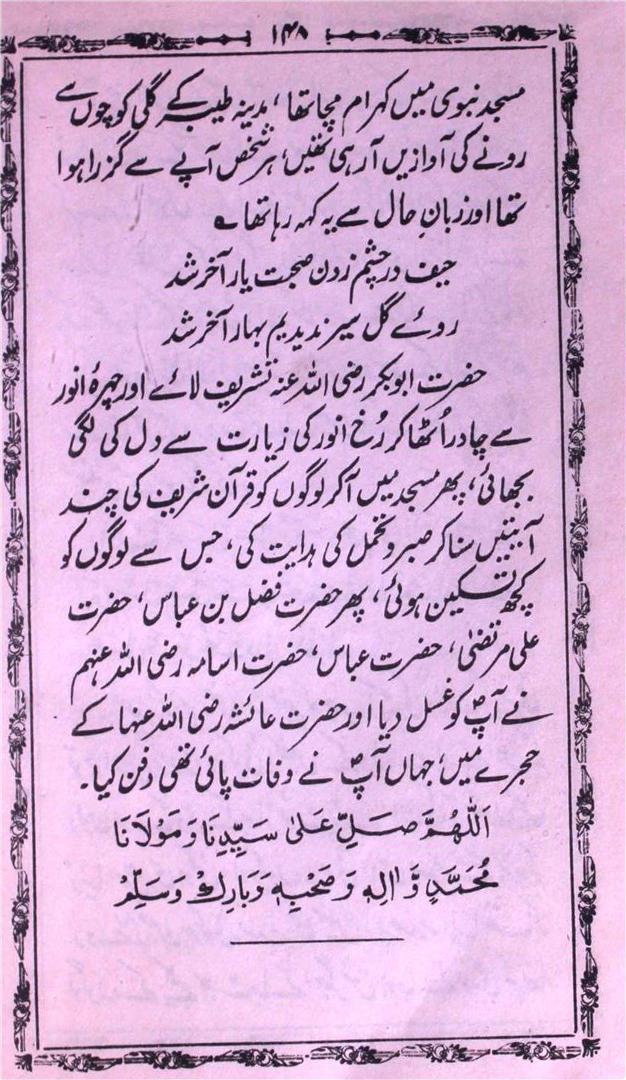 ۱۴۸
مسجد نبوی میں کہرام مچا تھا، مدینہ طیبہ کے گلی کوچوں سے
رونے کی آوازیں آ رہی تھیں، ہر شخص آپے سے گزرا ہوا
تھا اور زبانِ حال سے یہ کہہ رہا تھا ؎
حیف در چشم زدن صحبت یار آخر شد
روئے گل سیر ندیدیم بہار آخر شد
حضرت ابوبکر رضی اللہ عنہ تشریف لائے اور چہرۂ انور
سے چادر اُٹھا کر رُخ انور کی زیارت سے دل کی لگی
بجھائی، پھر مسجد میں آکر لوگوں کو قرآن شریف کی چند
آیتیں سنا کر صبر و تحمل کی ہدایت کی، جس سے لوگوں کو
کچھ تسکین ہوئی، پھر حضرت فضل بن عباس، حضرت
علی مرتضیٰ، حضرت عباس، حضرت اسامہ رضی اللہ عنہم
نے آپؐ کو غسل دیا اور حضرت عائشہ رضی اللہ عنہا کے
حجرے میں، جہاں آپؐ نے وفات پائی تھی دفن کیا۔
اَللّٰهُمَّ صَلِّ عَلٰى سَيِّدِنَا وَمَوْلَانَا
مُحَمَّدٍ وَّاٰلِهٖ وَصَحْبِهٖ وَبَارِكْ وَسَلِّمْ